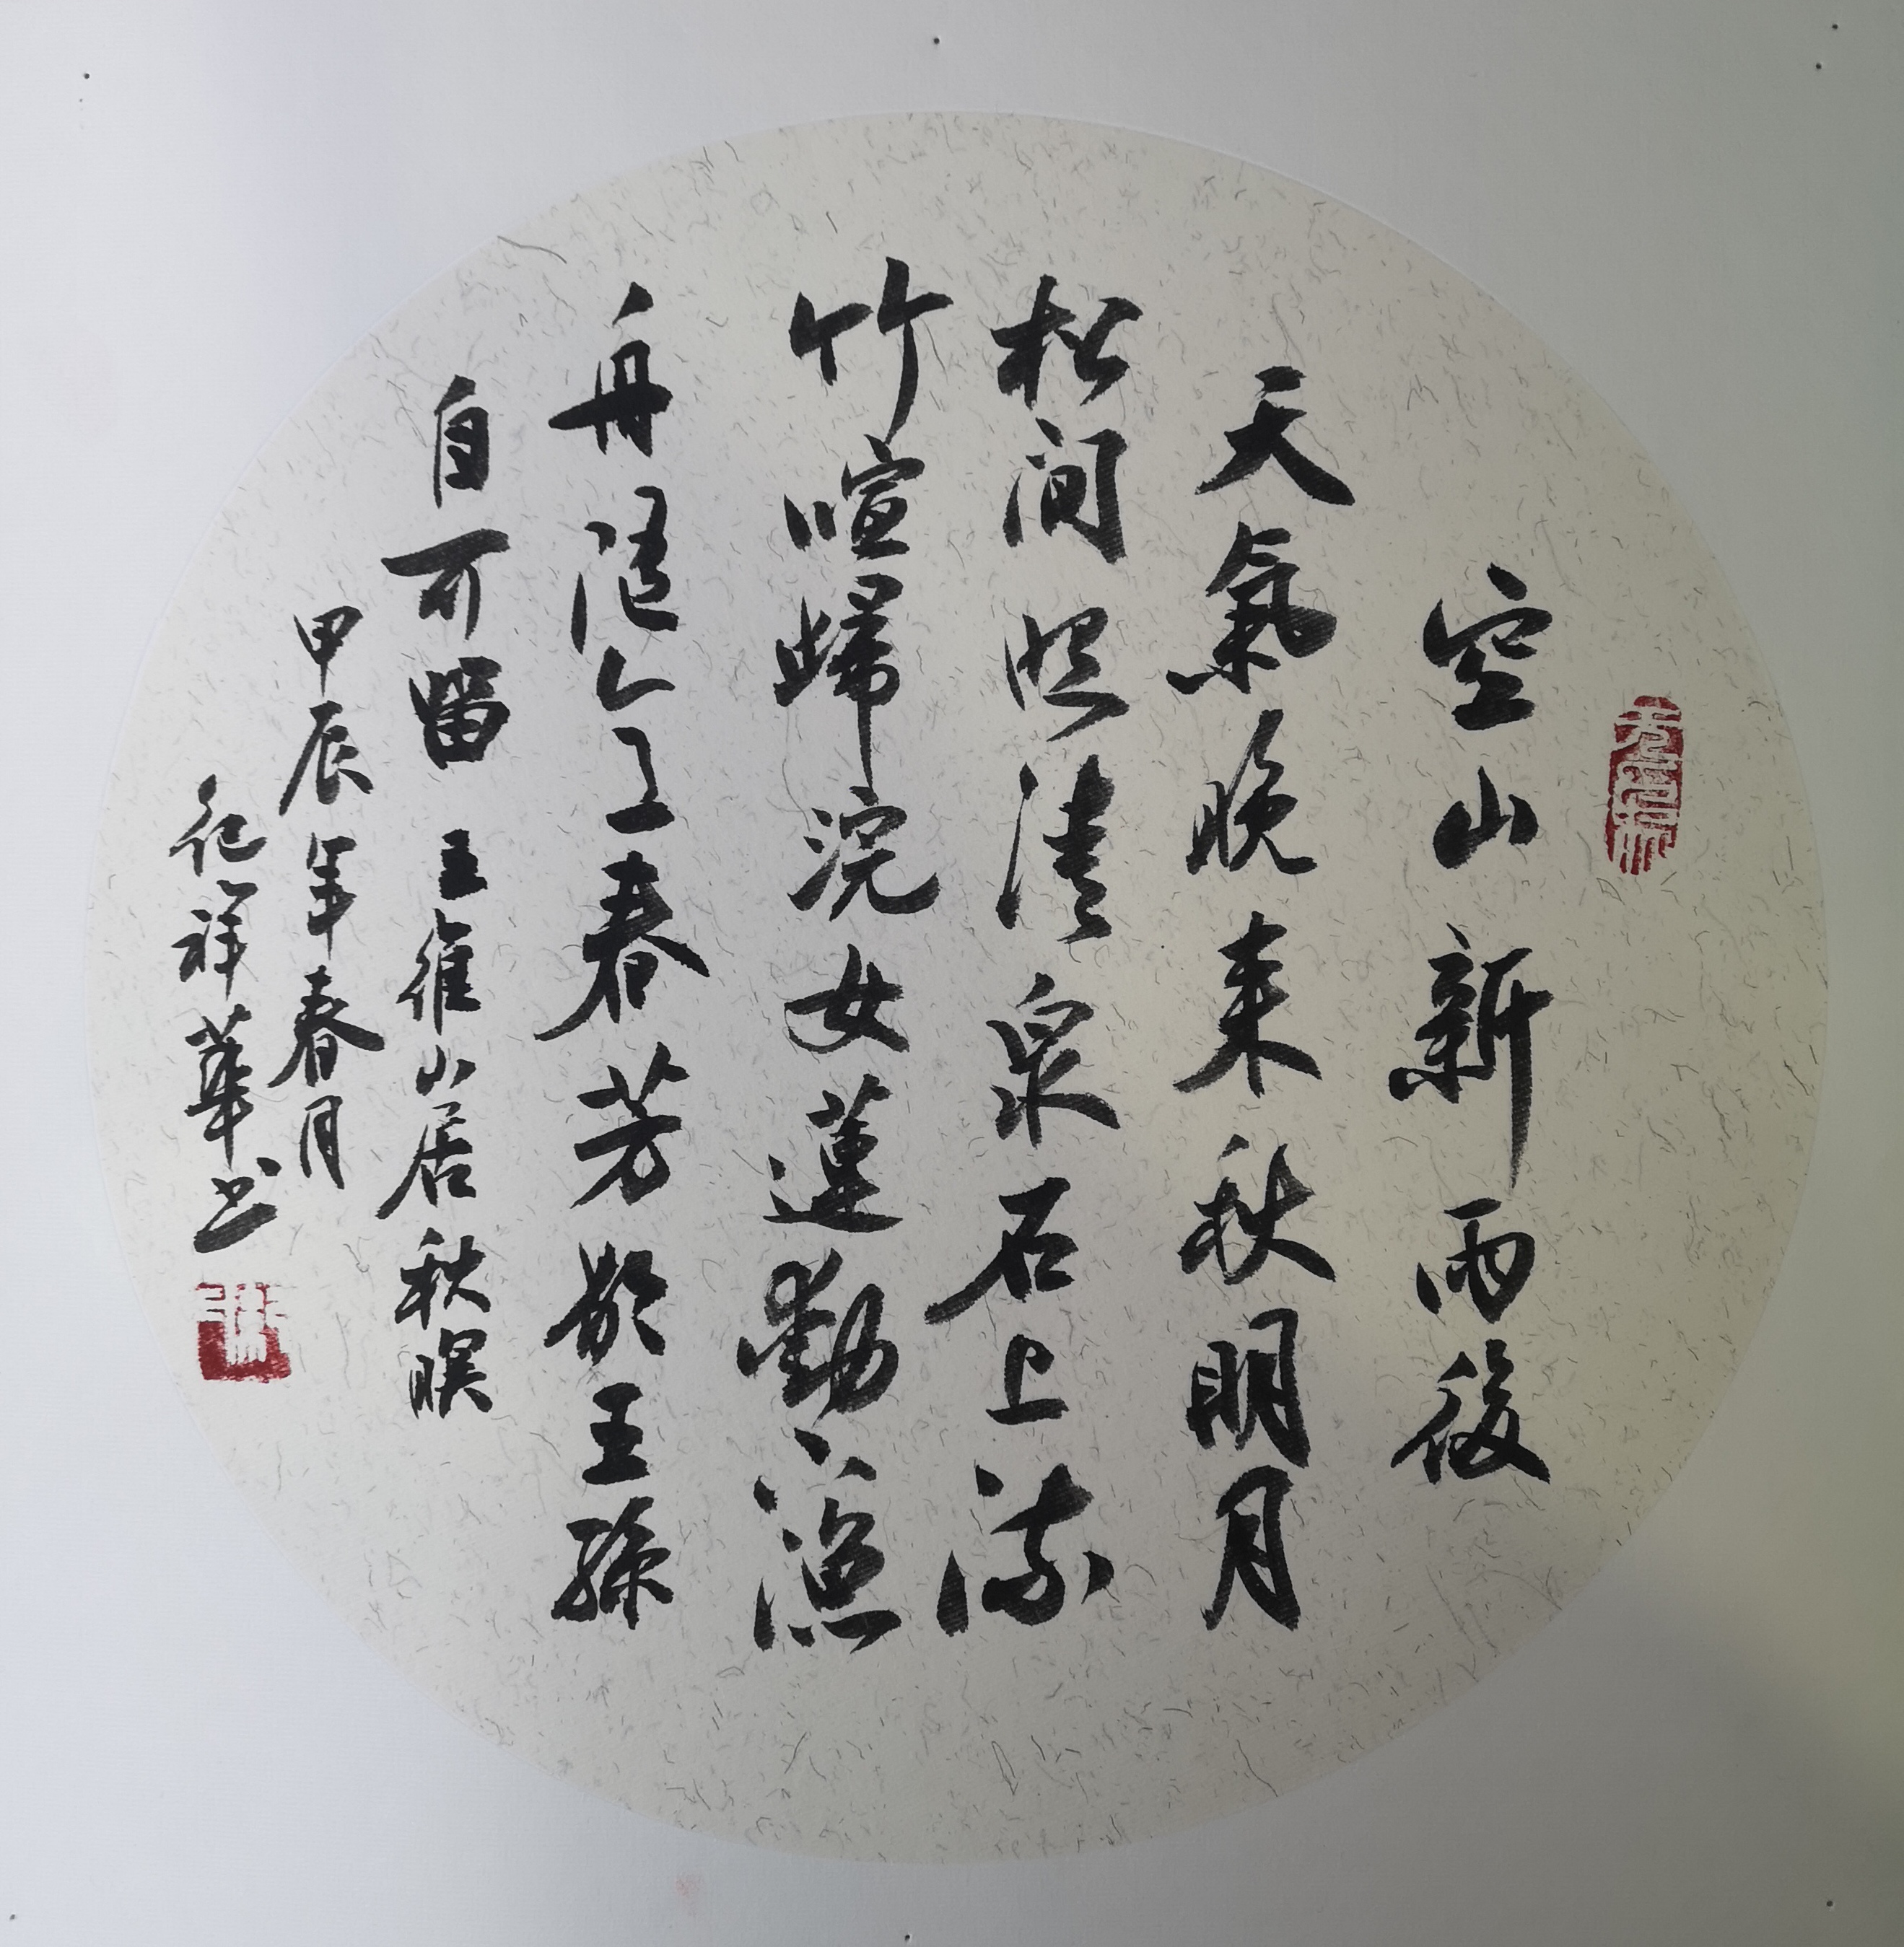 空山新雨後
天氣晚来秋明月
松间照清泉石上流
竹喧歸浣女蓮動下漁
舟随意春芳歇王孫
自可留 王維山居秋暝
甲辰年春月
祥華书